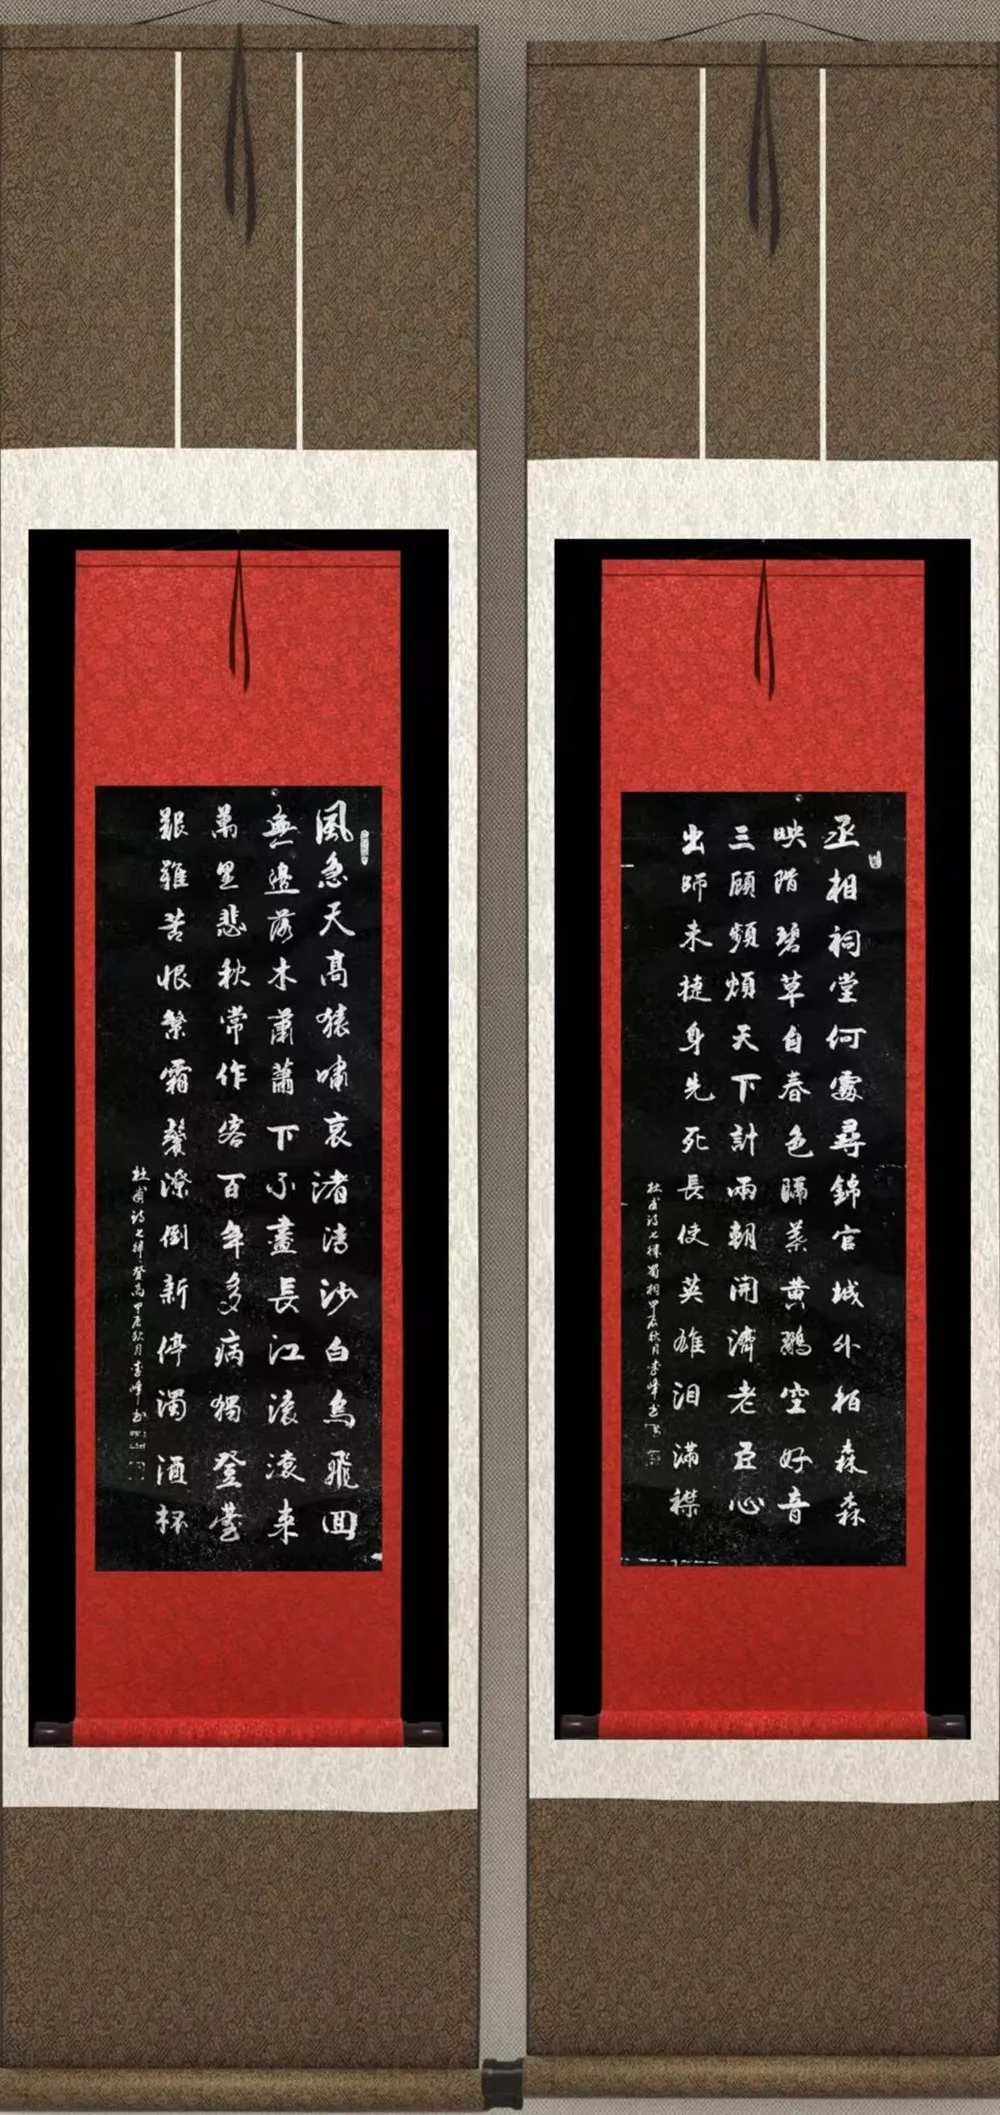 丞相祠堂何處尋錦官城外柏森森
映階碧草自春色隔葉黄鸝空好音
三顧頻煩天下計兩朝開濟老臣心
出師未捷身先死長使英雄泪滿襟
杜甫詩七律蜀相甲辰秋月李峰书
風急天高猿嘯哀渚清沙白鳥飛回
無邊落木蕭蕭下不盡長江滾滾来
萬里悲秋常作客百年多病獨登臺
艱難苦恨繁霜鬢潦倒新停濁酒杯
杜甫詩七律登高甲辰秋月李峰书